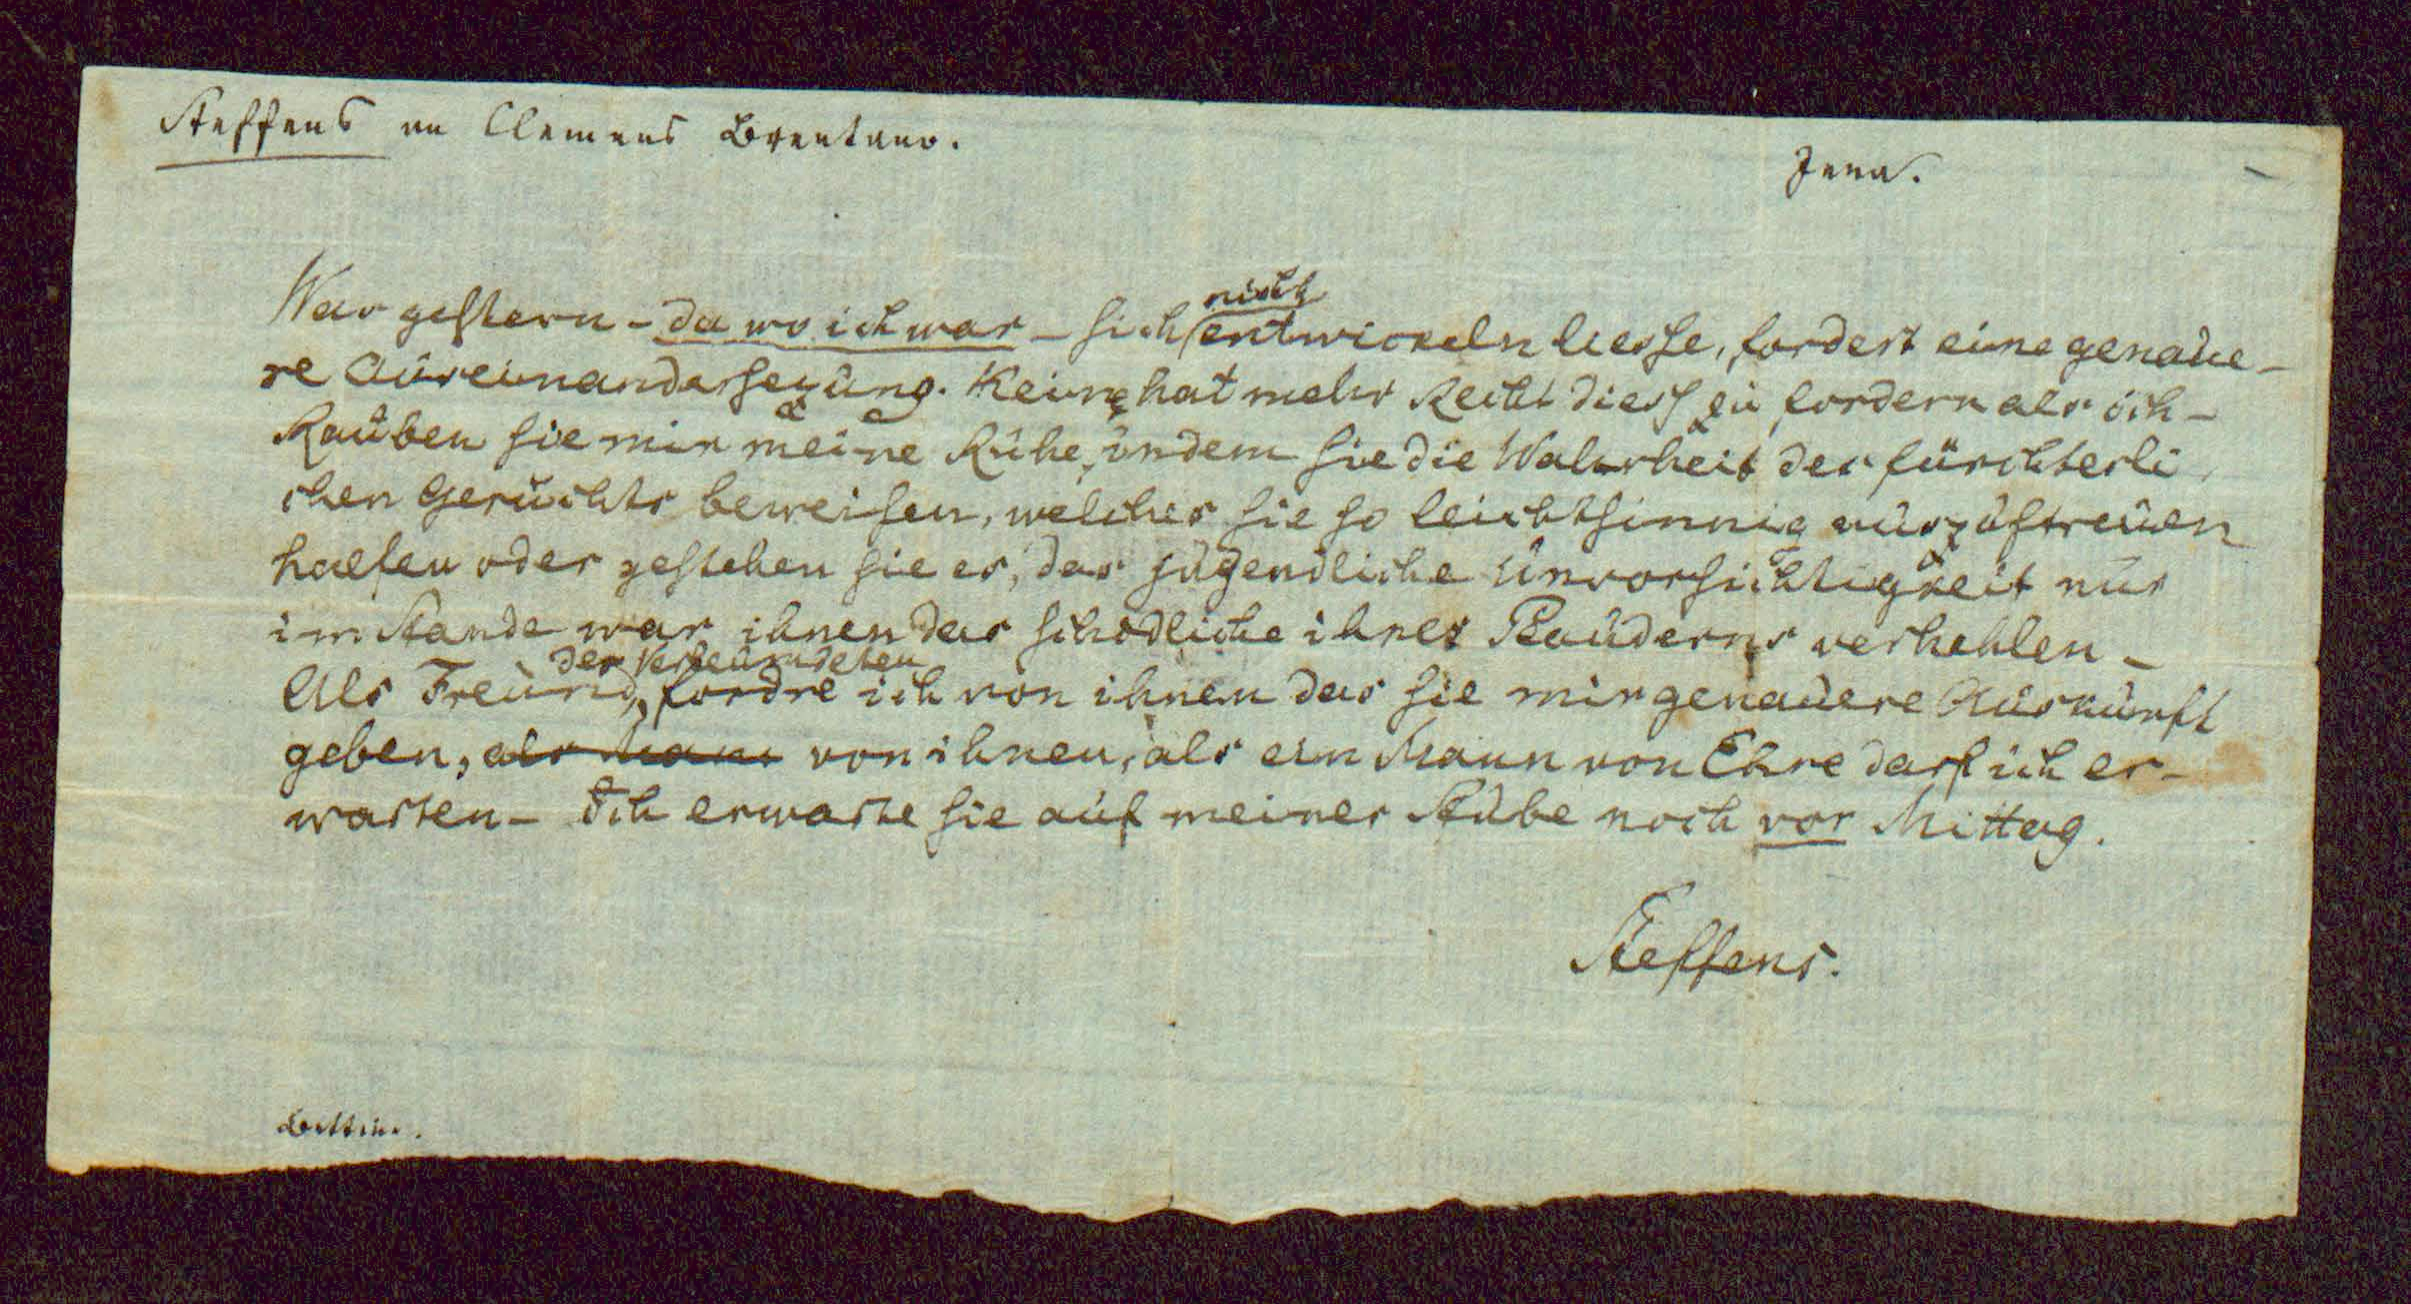 Steffens an Clemens Brentano.
Jena.
nicht
Was gestern – da wo ich war – sich entwickeln liesse, fordert eine genaue-
re Auseinandersezung. Keiner hat mehr Recht diess zu fordern als ich –
Rauben sie mir meine Ruhe, indem sie die Wahrheit des fürchterli
chen Gerüchts beweisen, welches sie so leichtsinnig auszustreuen
halfen oder gestehen sie es, das jugendliche Unvorsichtigkeit nur
im Stande war ihnen das schädliche ihres Plauderns verhehlen –
der Verleumdeten
Als Freund, fordre ich von ihnen das sie mir genauere Auskunft
geben, als Mann von ihnen, als ein Mann von Ehre darf ich er-
warten – Ich erwarte sie auf meiner Stube noch vor Mittag.
Steffens.
Bettine.